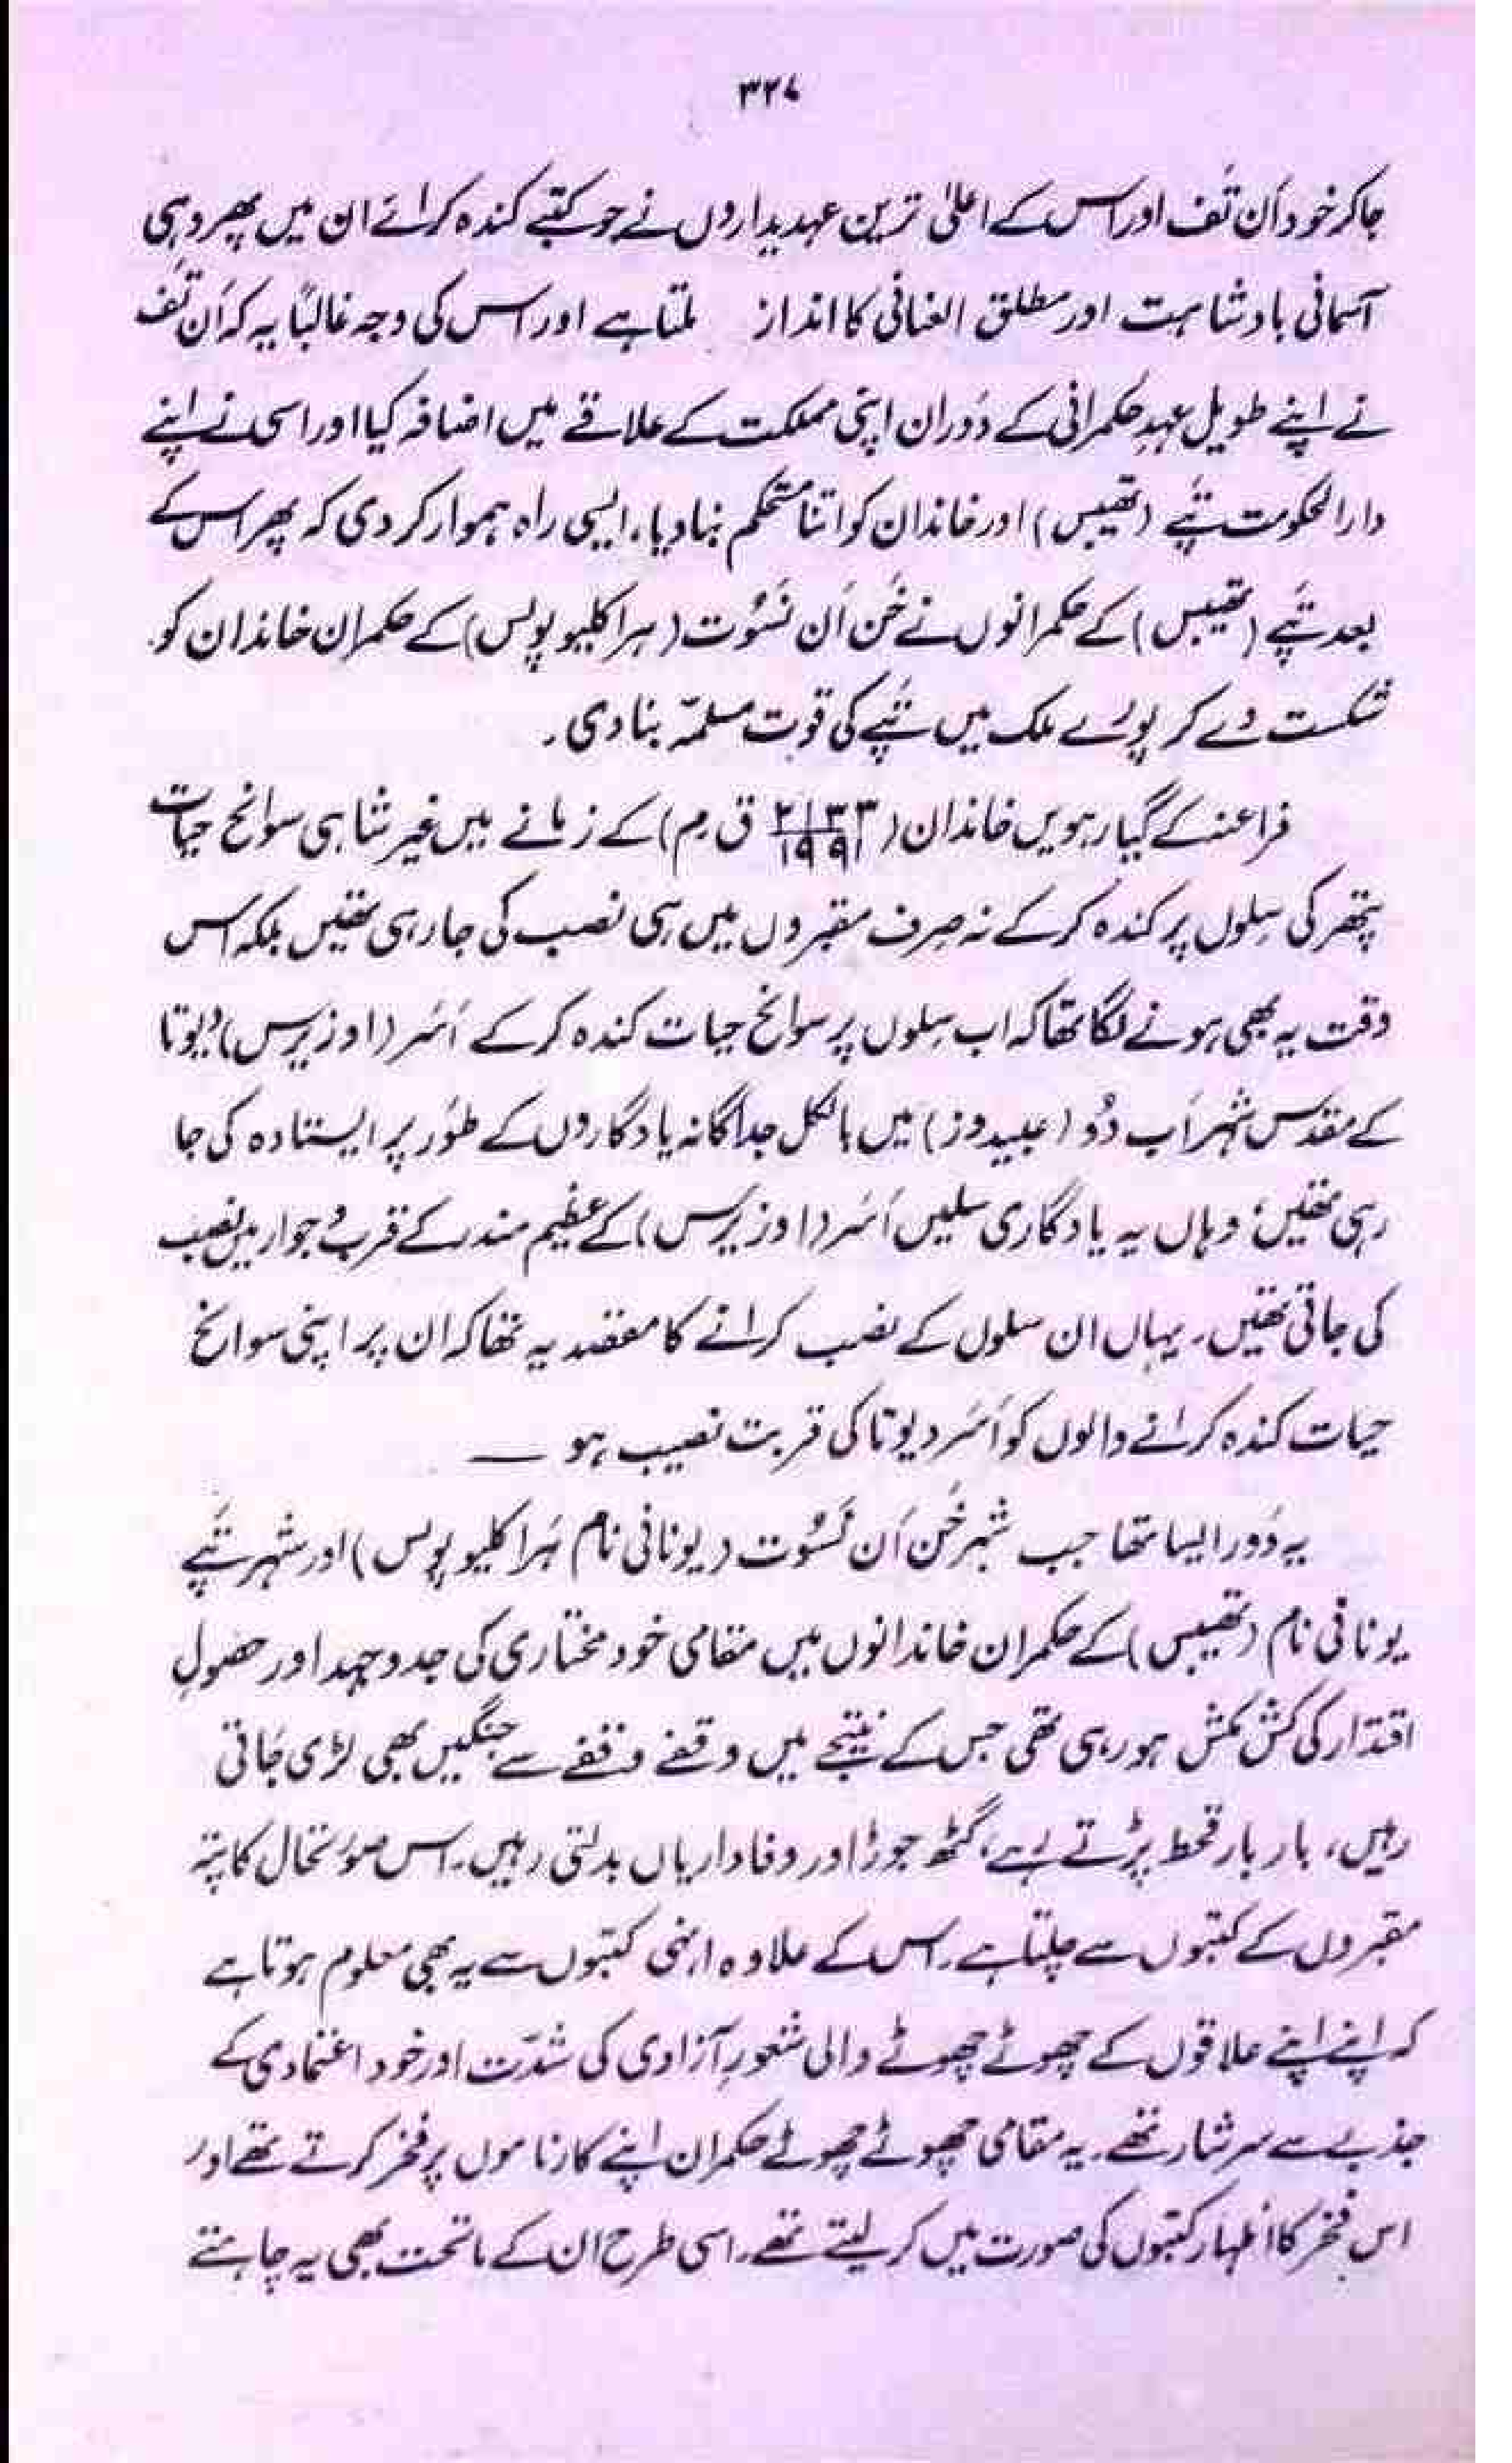 ۳۲۷
جا کر خود اَن تَف اور اس کے اعلیٰ ترین عہدیداروں نے جو کتبے کندہ کرائے ان میں پھر وہی
آسمانی بادشاہت اور مطلق العنانی کا انداز ملتا ہے اور اس کی وجہ غالباً یہ کہ اَن تَف
نے اپنے طویل عہدِ حکمرانی کے دَوران اپنی مملکت کے علاقے میں اضافہ کیا اور اسی نے اپنے
دارالحکومت تپے (تھیبس) اور خاندان کو اتنا مستحکم بنا دیا، ایسی راہ ہموار کر دی کہ پھر اس کے
بعد تپے (تھیبس) کے حکمرانوں نے خُن اَن نسُوت (ہراکلیوپولس) کے حکمران خاندان کو
شکست دے کر پورے ملک میں تپے کی قوت مسلمّہ بنا دی۔
فراعنہ کے گیارہویں خاندان (۲۱۳۳/۱۹۹۱ ق۔م) کے زمانے میں غیر شاہی سوانح حیات
پتھر کی سِلوں پر کندہ کر کے نہ صِرف مقبروں میں ہی نصب کی جا رہی تھیں بلکہ اس
وقت یہ بھی ہونے لگا تھا کہ اب سِلوں پر سوانح حیات کندہ کر کے اَسَر (اوزیرس) دیوتا
کے مقدس شہر اَب دُو (عبیدوز) میں بالکل جداگانہ یادگاروں کے طَور پر ایستادہ کی جا
رہی تھیں، وہاں یہ یادگاری سلیں اَسَر (اوزیرس) کے عظیم مندر کے قرب و جوار میں نصب
کی جاتی تھیں۔ یہاں ان سلوں کے نصب کرانے کا مقصد یہ تھا کہ ان پر اپنی سوانح
حیات کندہ کرانے والوں کو اَسَر دیوتا کی قربت نصیب ہو ۔۔۔
یہ دَور ایسا تھا جب شہر خُن اَن نَسُوت (یونانی نام ہَراکلیوپولس) اور شہر تپے
یونانی نام (تھیبس) کے حکمران خاندانوں میں مقامی خود مختاری کی جدوجہد اور حصولِ
اقتدار کی کش مکش ہو رہی تھی جس کے نتیجے میں وقفے وقفے سے جنگیں بھی لڑی جاتی
رہیں، بار بار قحط پڑتے رہے، گٹھ جوڑ اور وفاداریاں بدلتی رہیں۔ اس صورتحال کا پتہ
مقبروں کے کتبوں سے چلتا ہے۔ اس کے علاوہ انہی کتبوں سے یہ بھی معلوم ہوتا ہے
کہ اپنے اپنے علاقوں کے چھوٹے چھوٹے والی شعورِ آزادی کی شدّت اور خود اعتمادی کے
جذبے سے سرشار تھے۔ یہ مقامی چھوٹے چھوٹے حکمران اپنے کارناموں پر فخر کرتے تھے اور
اس فخر کا اظہار کتبوں کی صورت میں کر لیتے تھے۔ اسی طرح ان کے ماتحت بھی یہ چاہتے